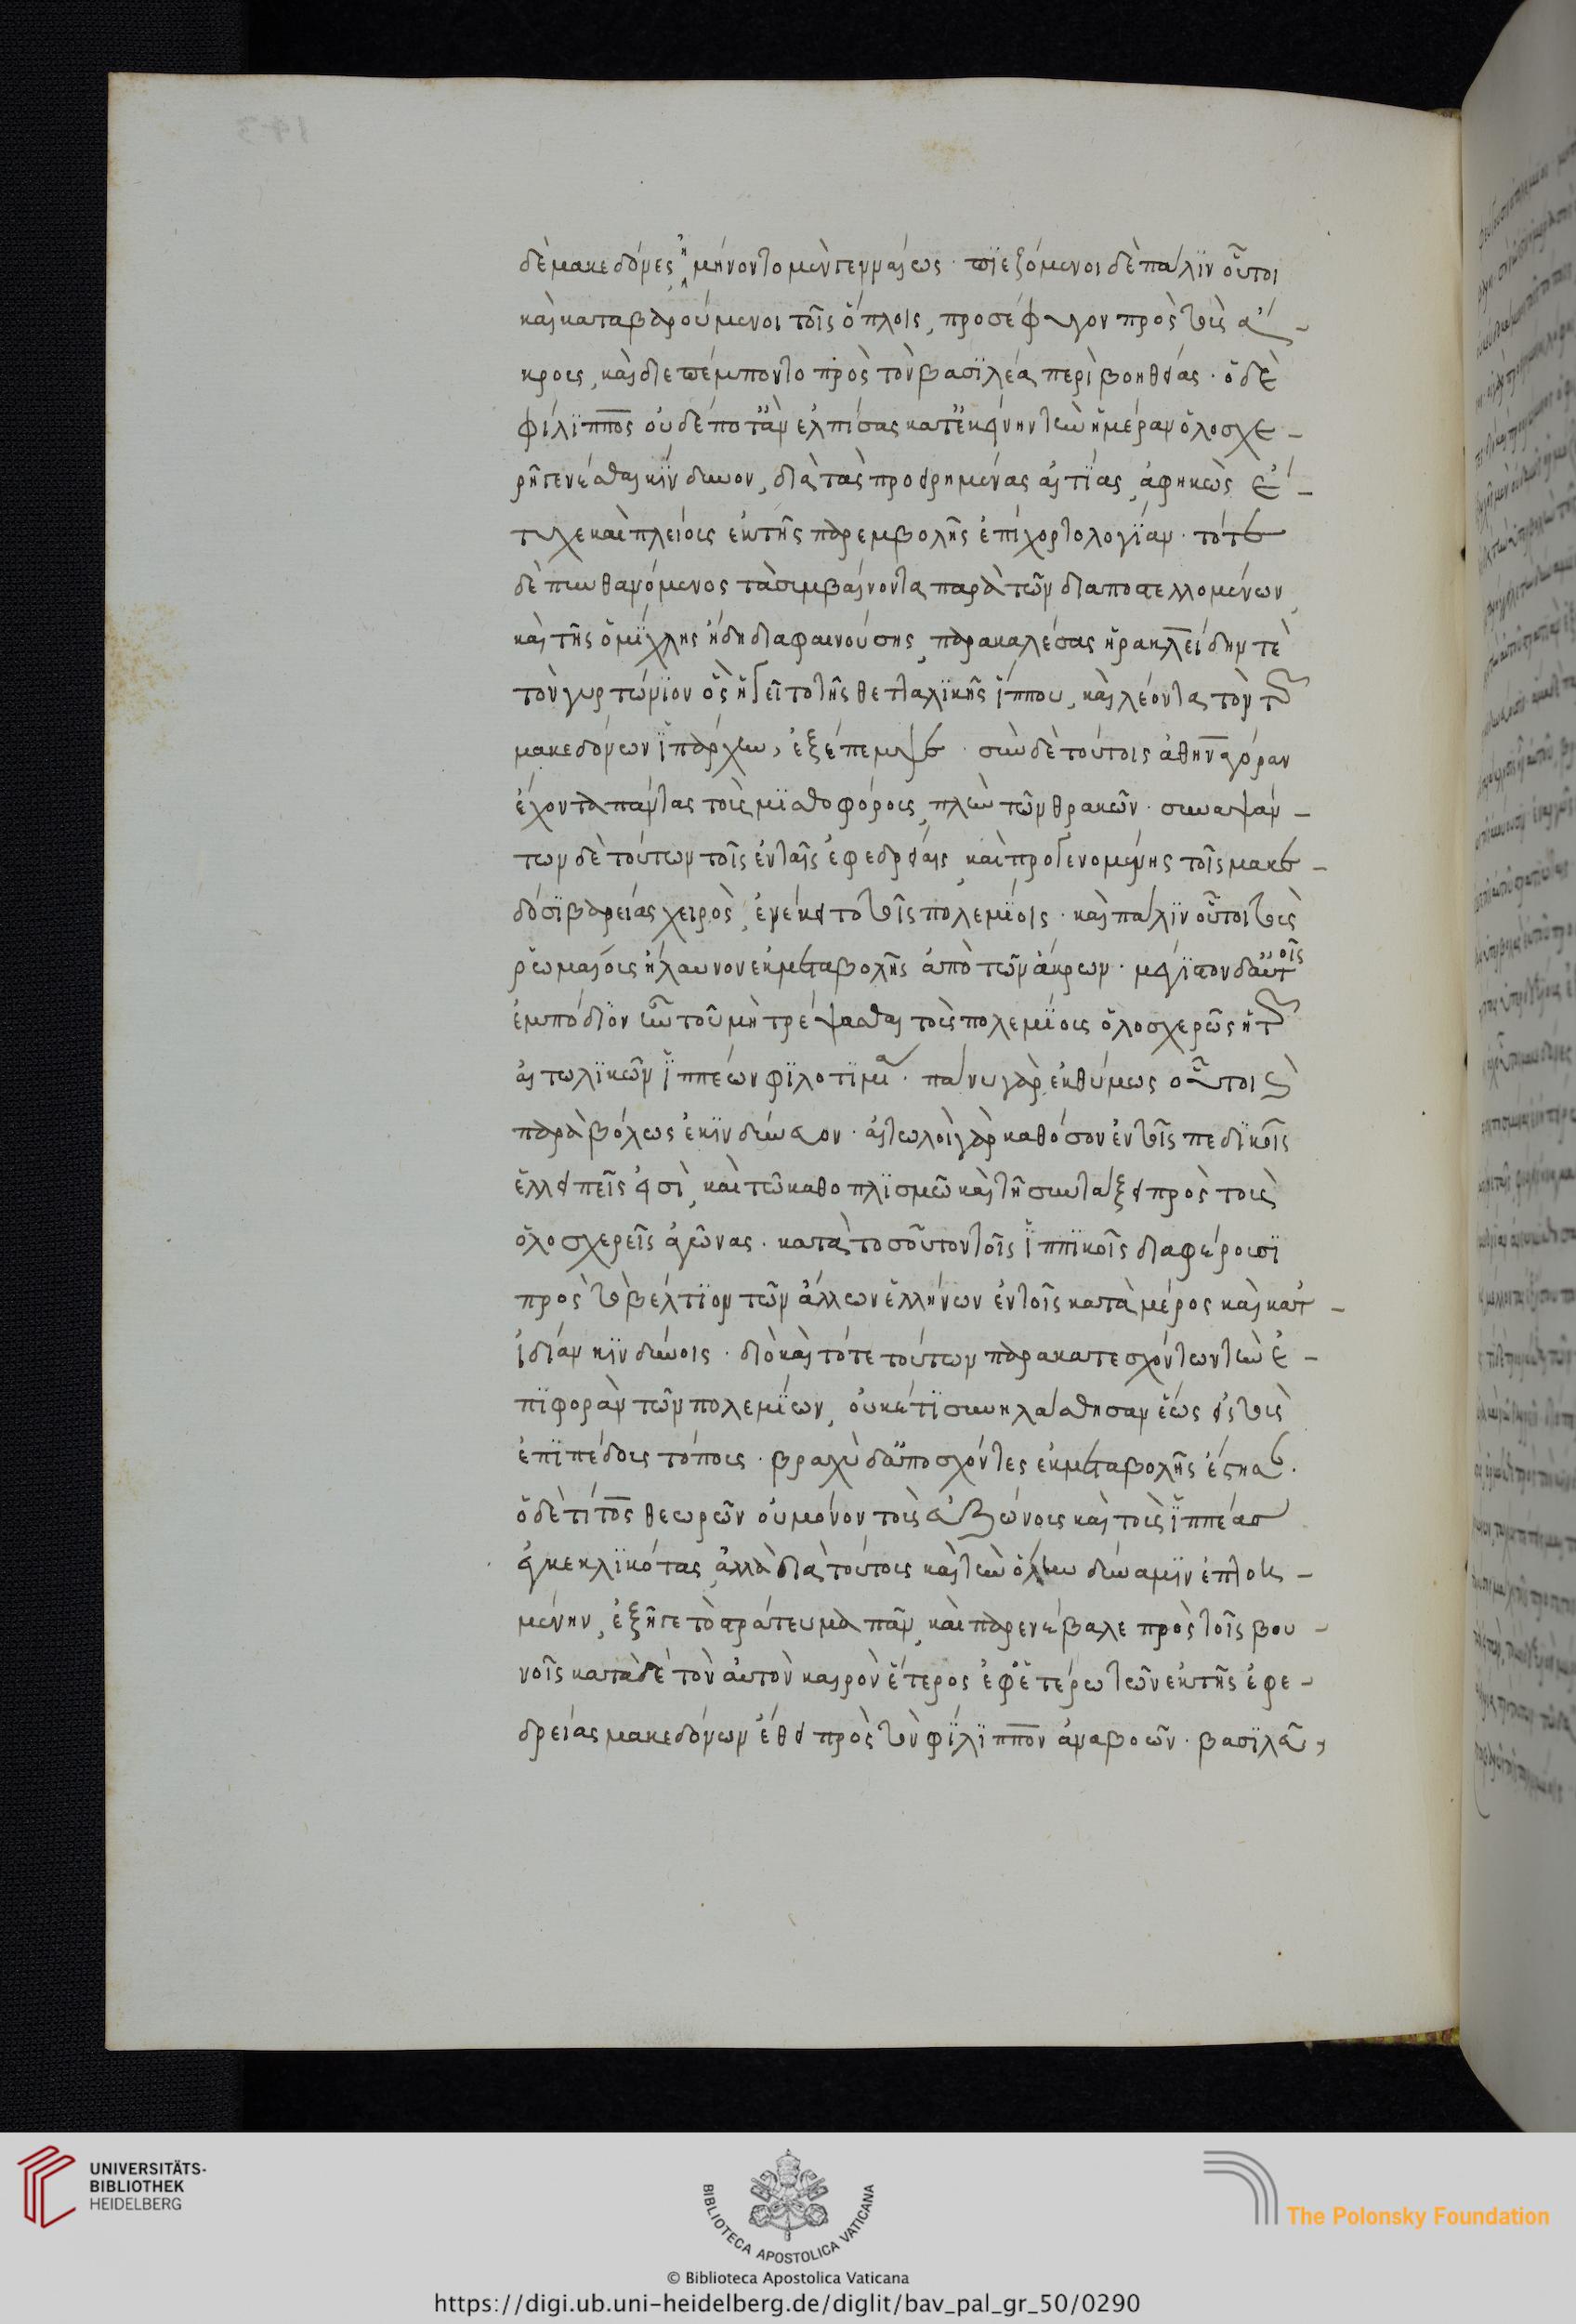 δὲ μακεδόνες ἠμύνοντο μὲν γενναίως· πϊεζόμενοι δὲ πάλϊν οὗτοι
καὶ καταβαρούμενοι τοῖς ὅπλοις, προσέφευγον πρὸς τοὺς ἄ-
κρους, καὶ διεπέμποντο πρὸς τὸν βασϊλέα περὶ βοηθείας· ὁ δὲ
φίλϊππος οὐδέποτ' ἂν ἐλπίσας κατ' ἐκείνην τὴν ἡμέραν ὁλοσχε-
ρῆ γενέσθαι κίνδυνον, διὰ τὰς προειρημένας αἰτίας, ἀφηκὼς ἐ-
τυχε καὶ πλείους ἐκ τῆς παρεμβολῆς ἐπὶ χορτολογίαν· τότε
δὲ πυνθανόμενος τὰ συμβαίνοντα παρὰ τῶν διαποστελλομένων,
καὶ τῆς ὀμίχλης ἤδη διαφαινούσης, παρακαλέσας ἡρακλείδην τὲ
τὸν γυρτώνϊον ὃς ἡγεῖτο τῆς θετταλϊκῆς ἵππου, καὶ λέοντα τὸν τῶν
μακεδόνων ἱπάρχην, ἐξέπεμψε· σὺν δὲ τούτοις ἀθηναγόραν
ἔχοντα πάντας τοὺς μϊσθοφόρους, πλὴν τῶν θρακῶν· συναψάν-
των δὲ τούτων τοῖς ἐν ταῖς ἐφεδρείαις, καὶ προσγενομένης τοῖς μακε-
δόσϊ βαρείας χειρὸς, ἐνέκειτο τοῖς πολεμίοις· καὶ πάλϊν οὗτοι τοὺς
ῥωμαίους ἤλαυνον ἐκ μεταβολῆς ἀπὸ τῶν ἄκρων· μέγϊστον δ' αὐτοῖς
ἐμπόδϊον ἦν τοῦ μὴ τρέψασθαι τοὺς πολεμίους ὁλοσχερῶς ἡ τῶν
αἰτωλϊκῶν ἱππέων φϊλοτϊμία· πάνυ γὰρ ἐκθύμως οὗτοι καὶ
παραβόλως ἐκϊνδύνευον· αἰτωλοὶ γὰρ καθόσον ἐν τοῖς πεδϊκοῖς
ἐλλειπεῖς εἰσὶ, καὶ τῶ καθοπλϊσμῶ καὶ τῆ συντάξει πρὸς τοὺς
ὁλοσχερεῖς ἀγῶνας· κατὰ τοσοῦτον τοῖς ἱππϊκοῖς διαφέρουσϊ
πρὸς τὸ βέλτϊον τῶν ἄλλων ἑλλήνων ἐν τοῖς κατὰ μέρος καὶ κατ'
ἰδίαν κϊνδύνοις· διὸ καὶ τότε τούτων παρακατεσχόντων τὴν ἐ-
πϊφορὰν τῶν πολεμίων, οὐκέτϊ συνηλάσθησαν ἕως εἰς τοὺς
ἐπϊπέδους τόπους· βραχὺ δ' ἀποσχόντες ἐκ μεταβολῆς ἔστησαν.
ὁ δὲ τίτος θεωρῶν οὐ μόνον τοὺς εὐζώνους καὶ τοὺς ἱππέας
ἐγκεκλϊκότας, ἀλλὰ διὰ τούτους καὶ τὴν ὅλην δύναμϊν ἐπτοη-
μένην, ἐξῆγε τὸ στράτευμα πᾶν, καὶ παρενέβαλε πρὸς τοῖς βου-
νοῖς κατὰ δὲ τὸν αὐτὸν καιρὸν ἕτερος ἐφ' ἑτέρω τῶν ἐκ τῆς ἐφε-
δρείας μακεδόνων ἔθει πρὸς τὸν φίλϊππον ἀναβοῶν· βασϊλεῦ,
UNIVERSITÄTS-
BIBLIOTHEK
HEIDELBERG
BIBLIOTECA APOSTOLICA VATICANA
The Polonsky Foundation
© Biblioteca Apostolica Vaticana
https://digi.ub.uni-heidelberg.de/diglit/bav_pal_gr_50/0290